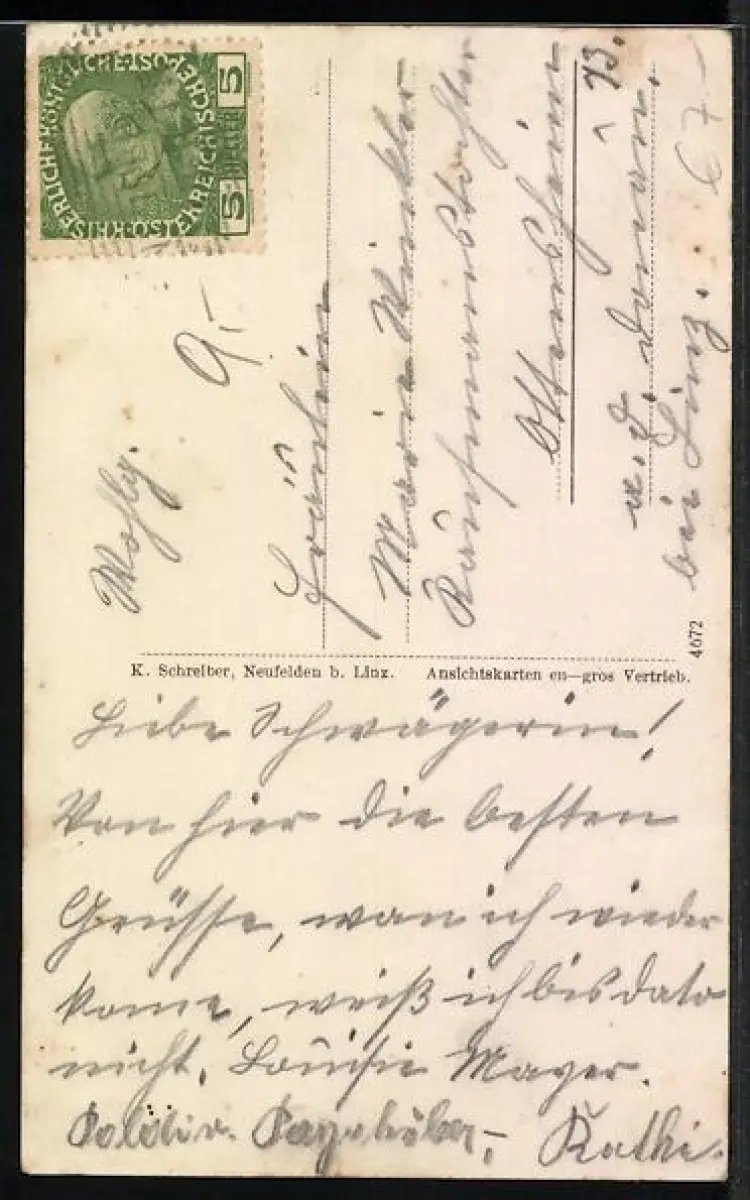 KAISERLICHE KÖNIGLICHE ÖSTERREICHISCHE POST
5 HELLER 5
9.-
Wohlg.
Fräulein
Maria Winkler
Kaufmannstochter
Ottensheim
a. d. Donau.
bei Linz.
67-
4672
K. Schreiber, Neufelden b. Linz. Ansichtskarten en—gros Vertrieb.
Liebe Schwägerin!
Von hier die besten
Grüsse, wan ich wieder
kome, weiß ich bis dato
nicht. Louisie Mayer.
Kathi.